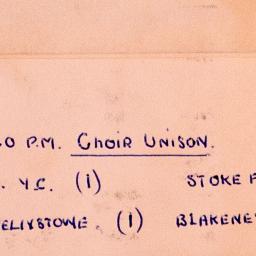 0 P.M. CHOIR UNISON.
. Y.C. (i) STOKE
ELIXSTOWE. (1) BLAKENE